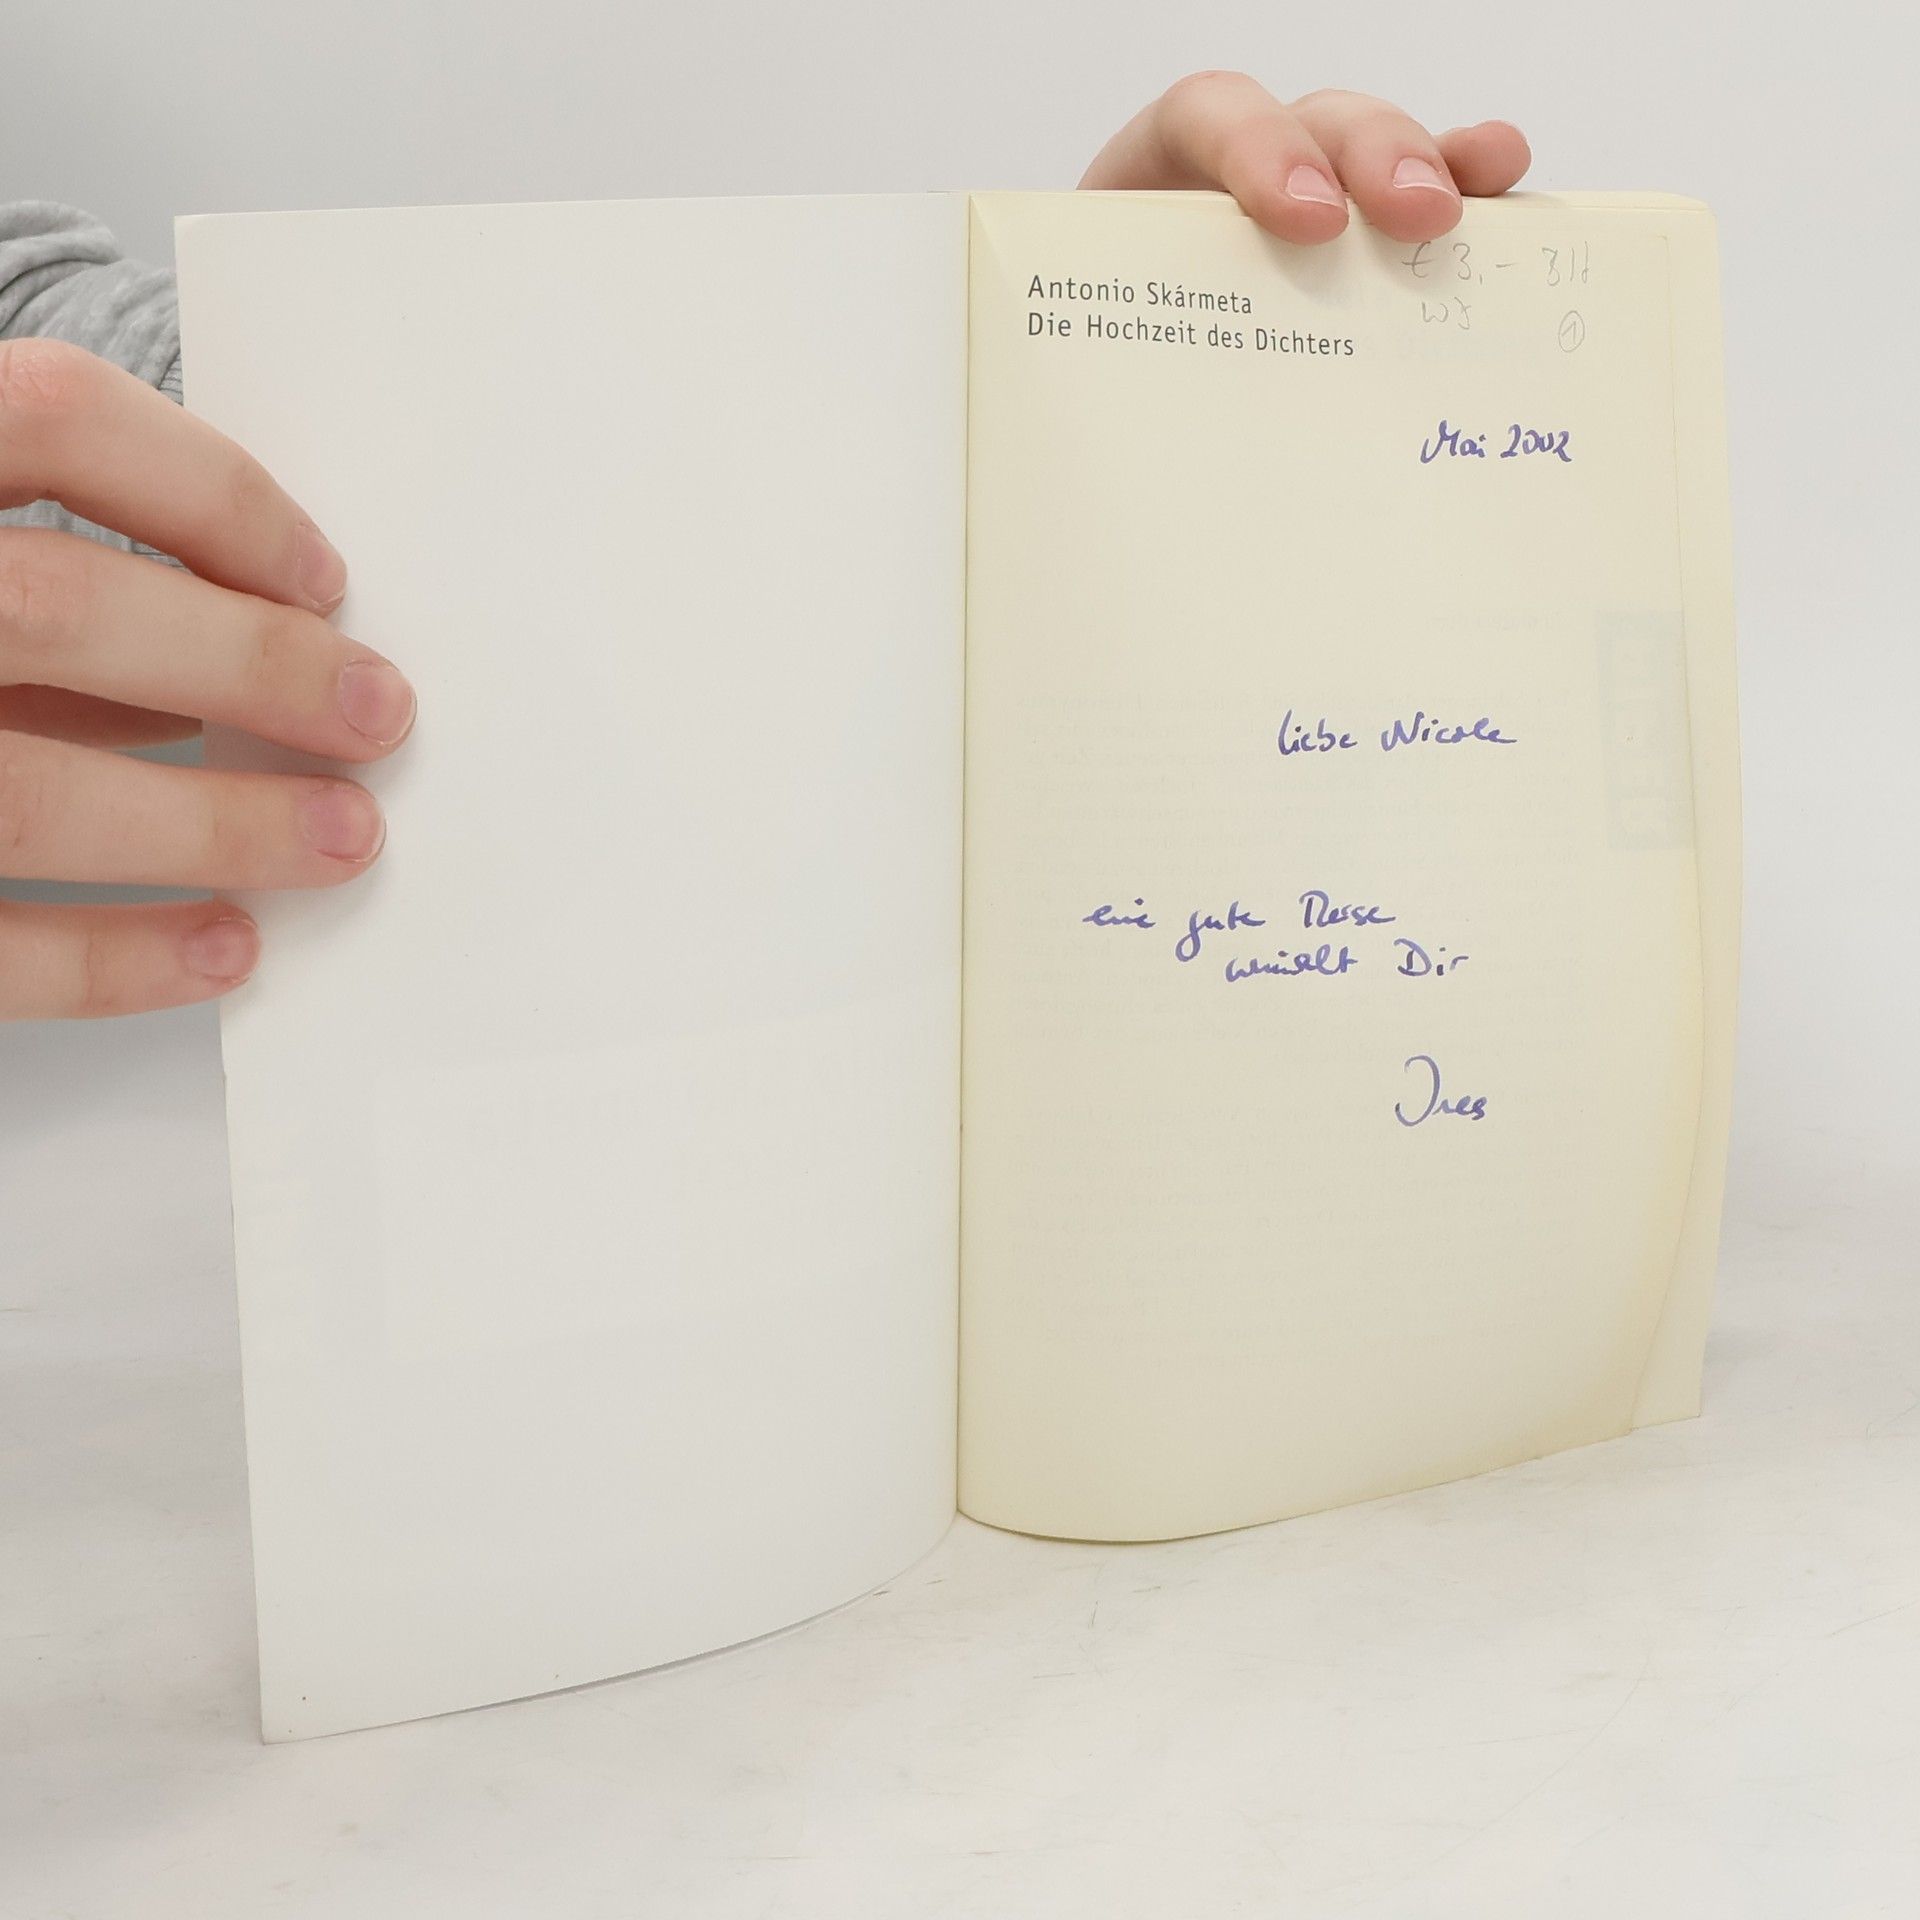 Antonio Skármeta
Die Hochzeit des Dichters
€ 3,-
①
Mai 2002
liebe Nicole
eine gute Reise
wünscht Dir
Ines